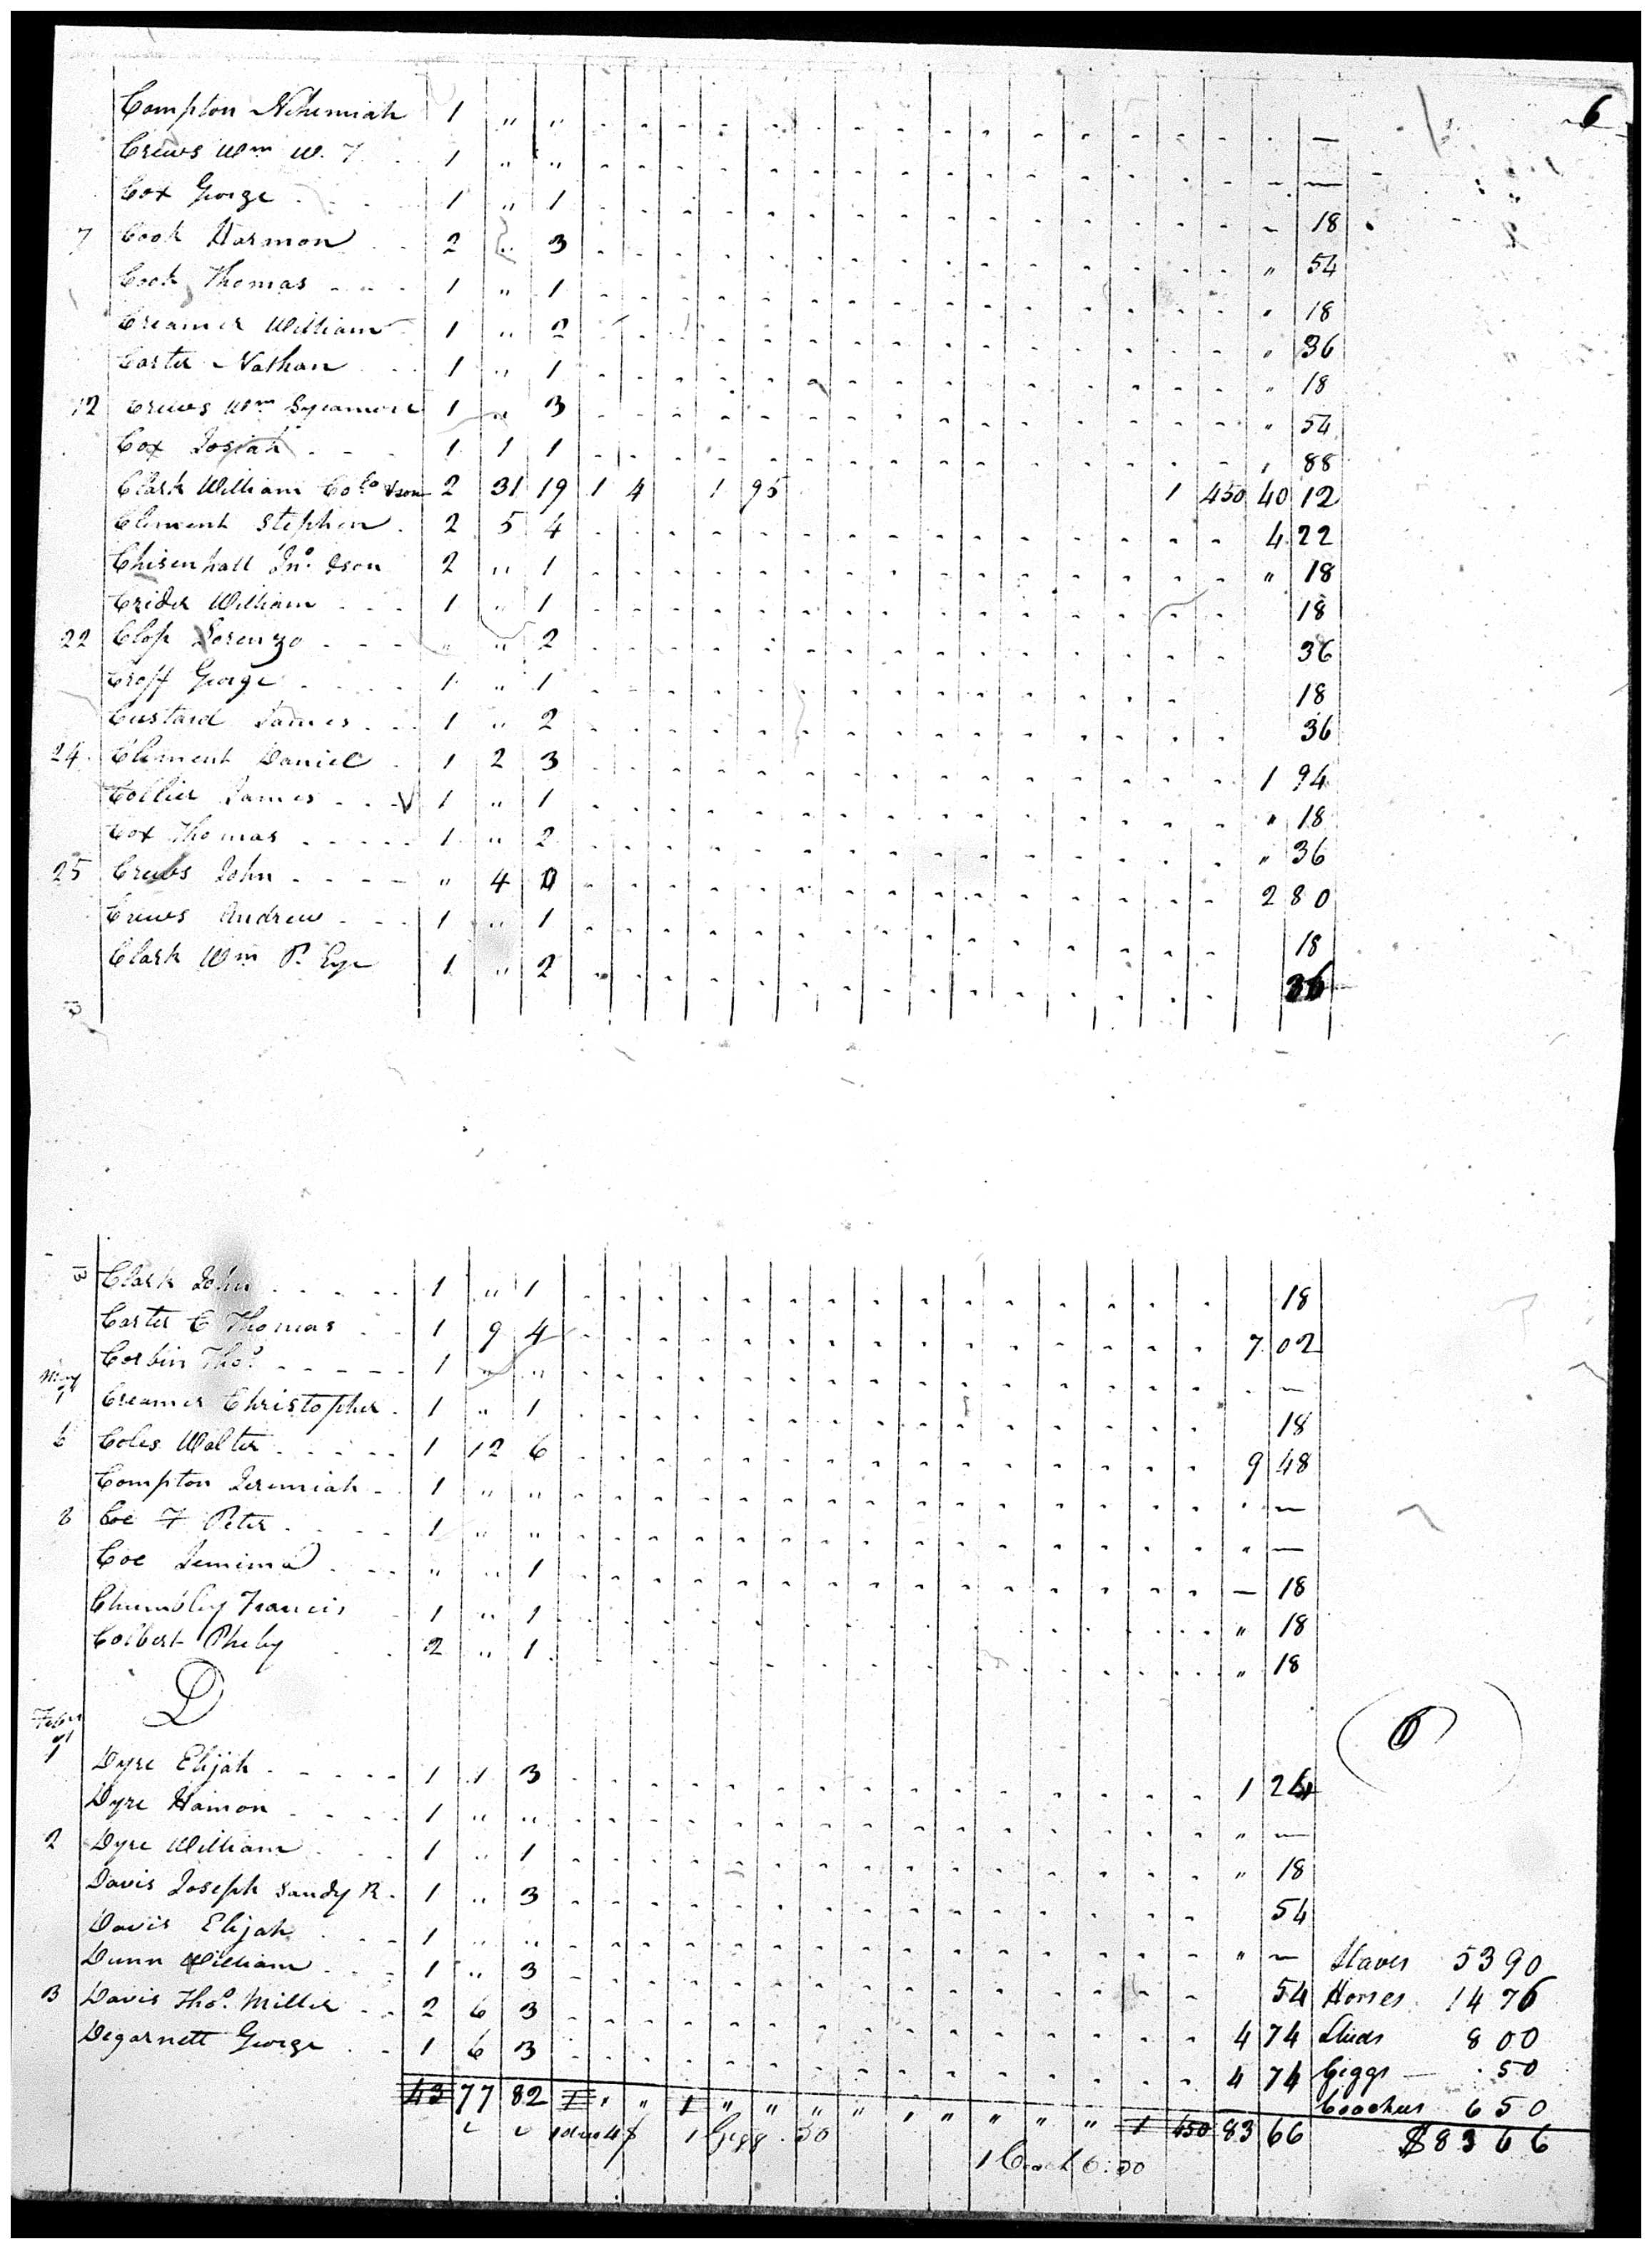 6
Compton Nehemiah 1 " " —
Crews Wm W. T 1 " " —
Cox George 1 " 1 18
7 Cook Harmon 2 " 3 " 54
Cook Thomas 1 " 1 " 18
Creamer William 1 " 2 " 36
Carter Nathan 1 " 1 " 18
12 Crews Wm Sycamore 1 " 3 " 54
Cox Josiah 1 1 1 " 88
Clark William Co &son 2 31 19 1 4 1 95 1 450 40 12
Clement Stephen 2 5 4 4 22
Chisenhall Jno. &son 2 " 1 " 18
Crider William 1 " 1 18
22 Clop Lorenzo " " 2 36
Croff George 1 " 1 18
Custard James 1 " 2 36
24 Clement Daniel 1 2 3 1 94
Collier James 1 " 1 " 18
Cox Thomas 1 " 2 " 36
25 Crews John " 4 0 2 80
Crews Andrew 1 " 1 18
Clark Wm P. 1 " 2 36
13
13 Clark John 1 " 1 18
Carter C Thomas 1 9 4 7 02
Corbin Thos. 1 " " —
May 1 Creamer Christopher 1 " 1 18
6 Coles Walter 1 12 6 9 48
Compton Jeremiah 1 " " —
8 Coe F Peter 1 " " " —
Coe Jemima " " 1 — 18
Chumbley Francis 1 " 1 " 18
Colbert Pheby 2 " 1 " 18
D
6
1 Dyre Elijah 1 1 3 1 24
Dyre Hamon 1 " " " —
2 Dyre William 1 " 1 " 18
Davis Joseph Sandy R. 1 " 3 54
Davis Elijah 1 " " " — Slaves 53 90
Dunn William 1 " 3 54 Horses 14 76
3 Davis Thos. Miller 2 6 3 4 74 Studs 8 00
Degarnett George 1 6 3 4 74 Giggs — . 50
Coaches 6 50
43 77 82 1 " " 1 " " " " " " " " " 1 450 83 66 $83 66
1 Gigg 50
1 Coach 6:50